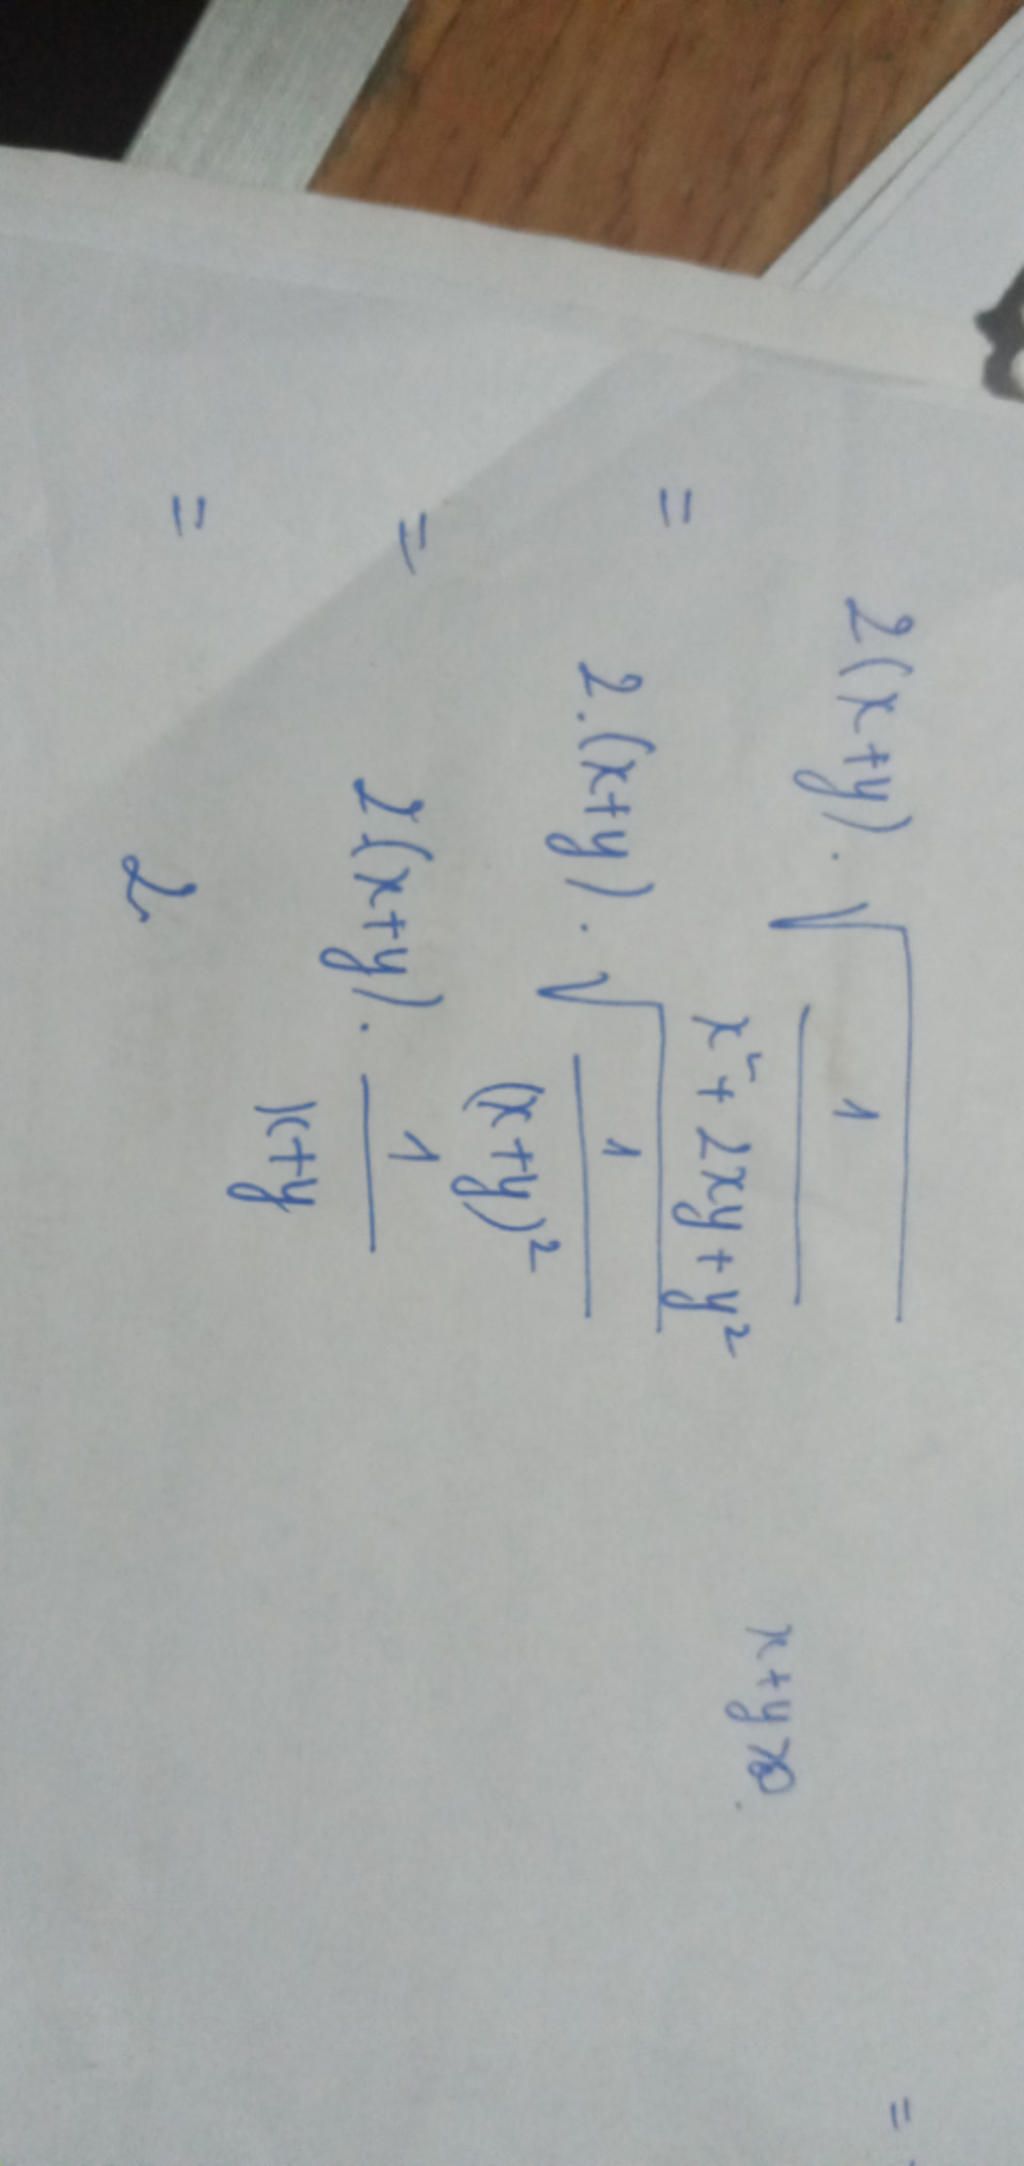 2(x+y) . √(1 / (x² + 2xy + y²)) x+y>0.
= 2.(x+y) . √(1 / (x+y)²)
= 2.(x+y) . 1 / (x+y)
= 2
=